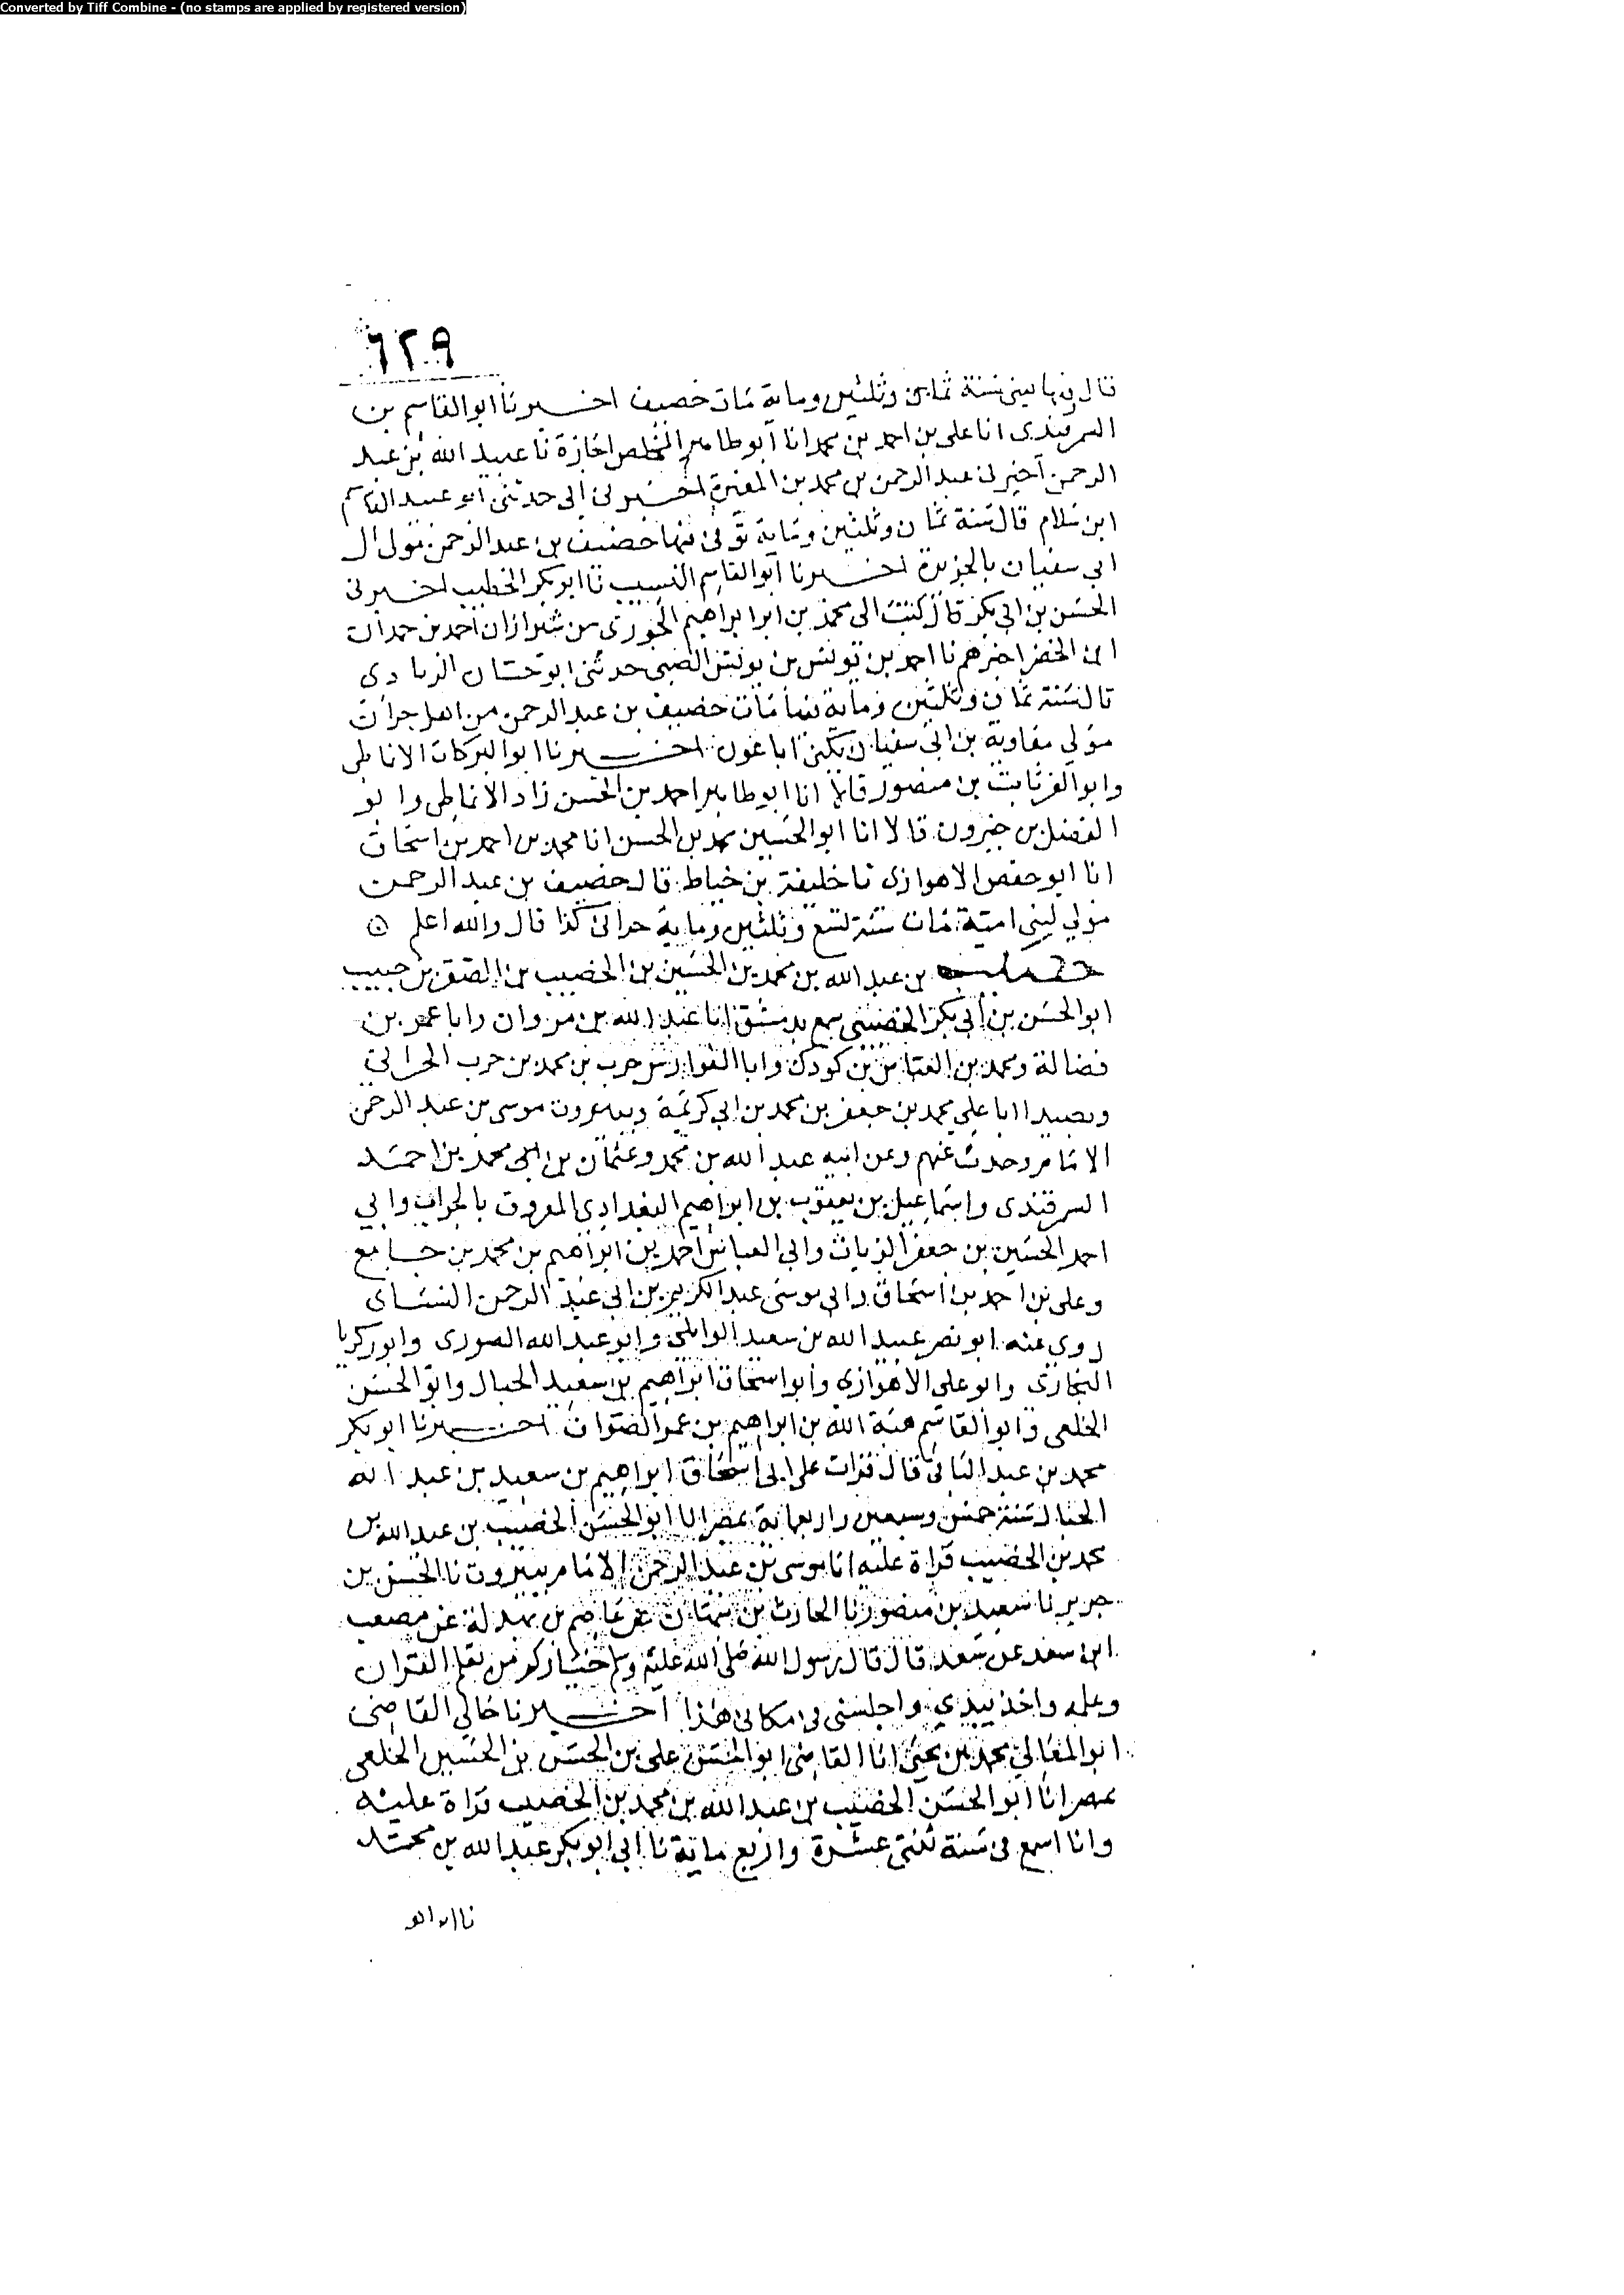 Converted by Tiff Combine - (no stamps are applied by registered version)
٦٢٩
قال فيها يعني سنة ثمان وثلثين وماية مات خصيف اخبرنا ابو القاسم بن
السمرقندى انا على بن احمد بن محمد انا ابو طاهر المخلص اجازة نا عبيد الله بن عبد
الرحمن اخبرنى عبد الرحمن بن محمد بن المغيرة اخبرنى ابى حدثنى ابو عبيد القاسم
ابن سلام قال سنة ثمان وثلثين وماية توفى فيها خصيف بن عبد الرحمن مولى ال
ابى سفيان بالجزيرة اخبرنا ابو القاسم النسيب نا ابو بكر الخطيب اخبرنى
الحسن بن ابى بكر قال كتب الى محمد بن ابراهيم الجورى من شيراز ان احمد بن حمدان
ابن الخضر اخبرهم نا احمد بن يونس بن يونس الضبى حدثنى ابو حسان الزيادى
قال سنة ثمان وثلثين وماية فيها مات خصيف بن عبد الرحمن من اهل حران
مولى معاوية بن ابى سفيان يكنى ابا عون اخبرنا ابو البركات الانماطى
وابو العز ثابت بن منصور قالا انا ابو طاهر احمد بن الحسن زاد الانماطى وابو
الفضل بن خيرون قالا انا ابو الحسين محمد بن الحسن انا محمد بن احمد بن اسحاق
انا ابو حفص الاهوازى نا خليفة بن خياط قال خصيف بن عبد الرحمن
مولى لبنى امية مات سنة تسع وثلثين وماية حرانى كذا قال والله اعلم
بن عبد الله بن محمد بن الحسين بن الخصيب بن الصقر بن حبيب
ابو الحسن بن ابى بكر الخصيبى سمع بدمشق ابا عبد الله بن مروان وابا عمر بن
فضالة ومحمد بن العباس بن كودك وابا الفوارس حرب بن محمد بن حرب الحرانى
وبصيدا ابا على محمد بن جعفر بن محمد بن ابى كريمة وببيروت موسى بن عبد الرحمن
الامام وحدث عنهم وعن ابيه عبد الله بن محمد وعثمان بن محمد بن احمد
السمرقندى واسماعيل بن يعقوب بن ابراهيم البغدادى المعروف بالجراب وابى
احمد الحسين بن جعفر الزيات وابى العباس احمد بن ابراهيم بن محمد بن جامع
وعلى بن احمد بن اسحاق وابى موسى عبد الكريم بن ابى عبد الرحمن النساى
روى عنه ابو نصر عبيد الله بن سعيد الوايلى وابو عبد الله الصورى وابو زكريا
البخارى وابو على الاهوازى وابو اسحاق ابراهيم بن سعيد الحبال وابو الحسن
الخلعى وابو القاسم هبة الله بن ابراهيم بن عمر الصواف اخبرنا ابو بكر
محمد بن عبد الباقى قال قرات على ابى اسحاق ابراهيم بن سعيد بن عبد الله
الحبال سنة خمس وسبعين واربعماية بمصر انا ابو الحسن الخصيب بن عبد الله بن
محمد بن الخصيب قراة عليه انا موسى بن عبد الرحمن الامام ببيروت نا الحسن بن
جرير نا سعيد بن منصور نا الحارث بن نبهان عن عاصم بن بهدلة عن مصعب
ابن سعد عن سعد قال قال رسول الله صلى الله عليه وسلم خياركم من تعلم القران
وعلمه واخذ بيدي واجلسنى فى مكانى هذا اخبرنا خالى القاضى
ابو المعالى محمد بن يحيى انا القاضى ابو الحسن على بن الحسن بن الحسين الخلعى
بمصر انا ابو الحسن الخصيب بن عبد الله بن محمد بن الخصيب قراة عليه
وانا اسمع فى سنة ثنتى عشرة واربع ماية نا ابى ابو بكر عبد الله بن محمد